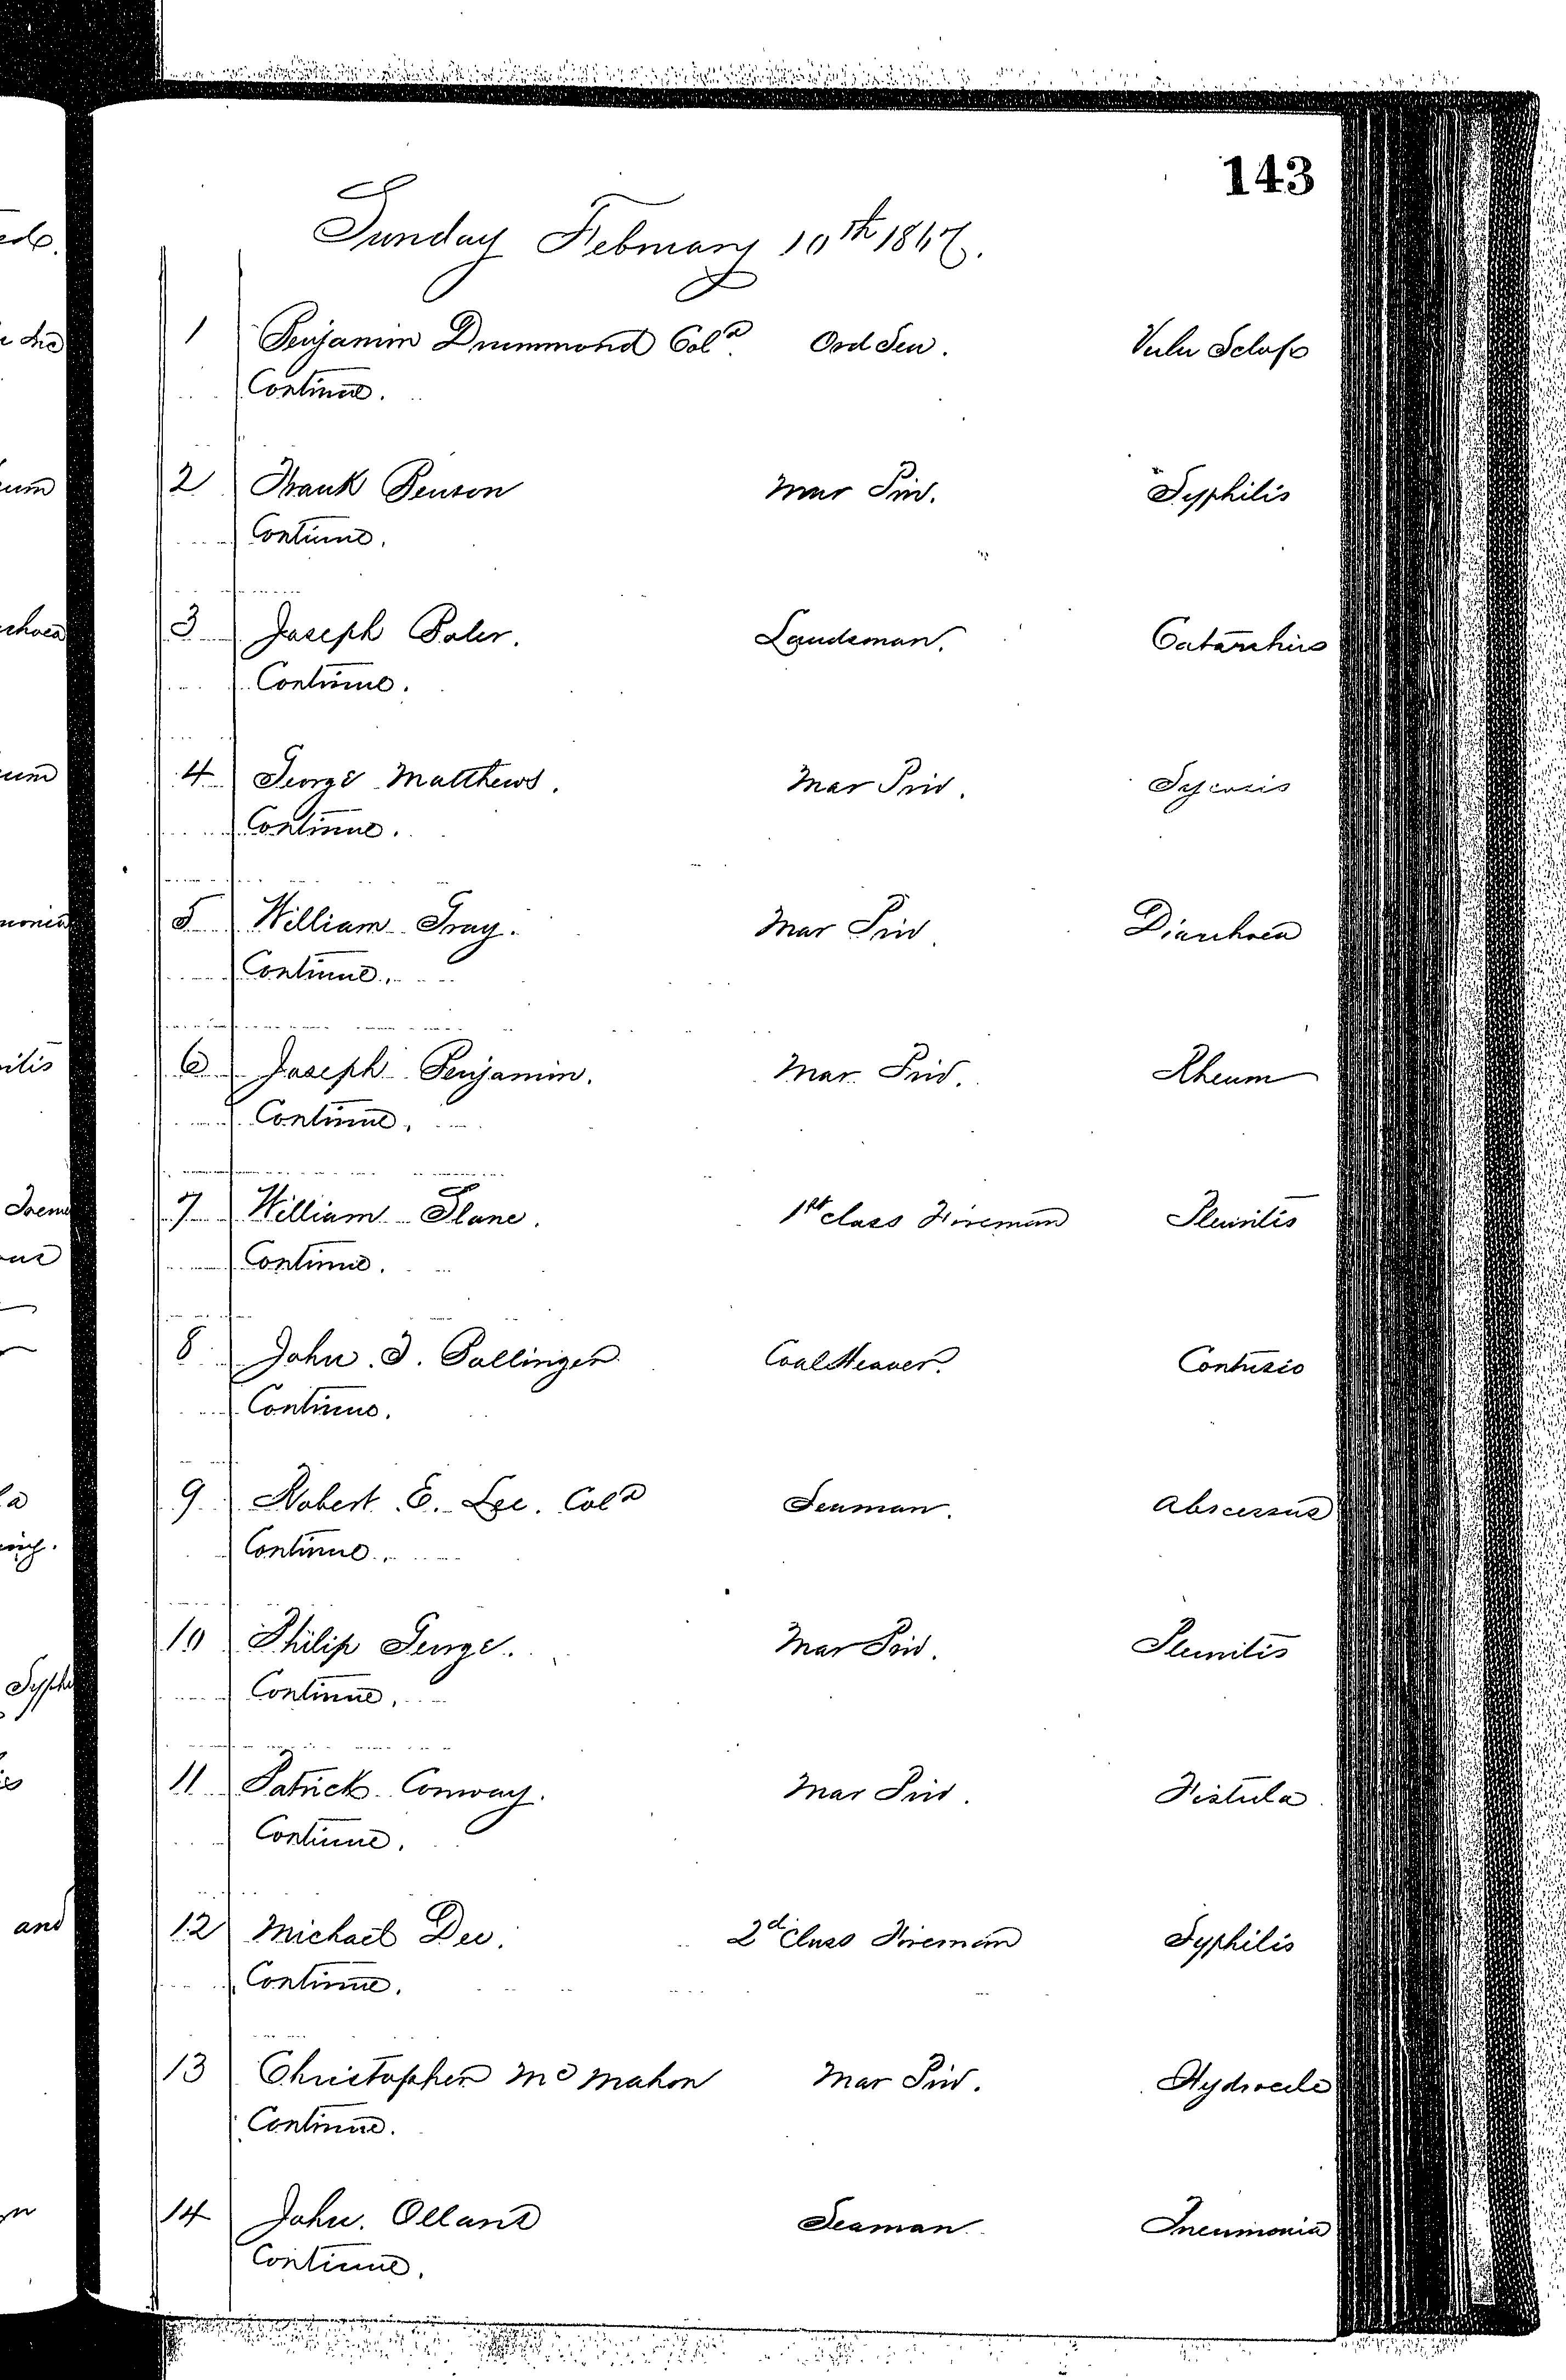 143
Sunday February 10th 1867.
1 Benjamin Drummond Cold. Ord Sea. Vuln Sclop
Continue.
2 Frank Benson Mar Priv. Syphilis
Continue.
3 Joseph Landsman. Catarrhus
Continue.
4 George Matthews. Mar Priv. Sycosis
Continue.
5 William Gray. Mar Priv. Diarrhoea
Continue.
6 Joseph Benjamin. Mar Priv. Rheum
Continue.
7 William Slane. 1st class Fireman Pleuritis
Continue.
8 John Bollinger Coal Heaver. Contusio
Continue.
9 Robert E. Lee. Cold Seaman. Abscessus
Continue.
10 Philip George. Mar Priv. Pleuritis
Continue.
11 Patrick Conway. Mar Priv. Fistula
Continue.
12 Michael Dee. 2d Class Fireman Syphilis
Continue.
13 Christopher McMahon Mar Priv. Hydrocele
Continue.
14 John. Seaman Pneumonia
Continue.